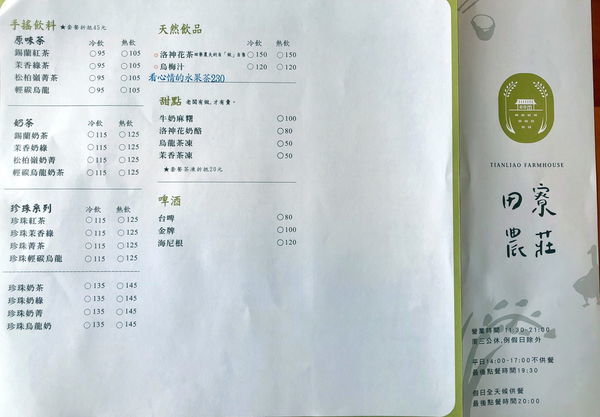 手搖飲料 ★套餐折抵45元
原味茶 冷飲 熱飲
錫蘭紅茶 ○95 ○105
茉香綠茶 ○95 ○105
松柏嶺菁茶 ○95 ○105
輕碳烏龍 ○95 ○105
奶茶 冷飲 熱飲
錫蘭奶茶 ○115 ○125
茉香奶綠 ○115 ○125
松柏嶺奶菁 ○115 ○125
輕碳烏龍奶茶 ○115 ○125
珍珠系列 冷飲 熱飲
珍珠紅茶 ○115 ○125
珍珠茉香綠 ○115 ○125
珍珠菁茶 ○115 ○125
珍珠輕碳烏龍 ○115 ○125
珍珠奶茶 ○135 ○145
珍珠奶綠 ○135 ○145
珍珠奶菁 ○135 ○145
珍珠烏龍奶 ○135 ○145
天然飲品
冷飲 熱飲
洛神花茶 ○150 ○150
烏梅汁 ○120 ○120
看心情的水果茶230
甜點 老闆有做,才有賣。
牛奶麻糬 ○100
洛神花奶酪 ○80
烏龍茶凍 ○50
茉香茶凍 ○50
★套餐茶凍折抵20元
啤酒
台啤 ○80
金牌 ○100
海尼根 ○120
TIANLIAO FARMHOUSE
田寮
農莊
營業時間 11:30-21:00
週三公休,例假日除外
平日14:00-17:00不供餐
最後點餐時間19:30
假日全天候供餐
最後點餐時間20:00